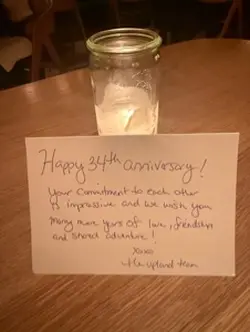 Happy 34th anniversary!
Your commitment to each other
is impressive and we wish you
many more years of love, friendship
and shared adventure!
xoxo
the upland team